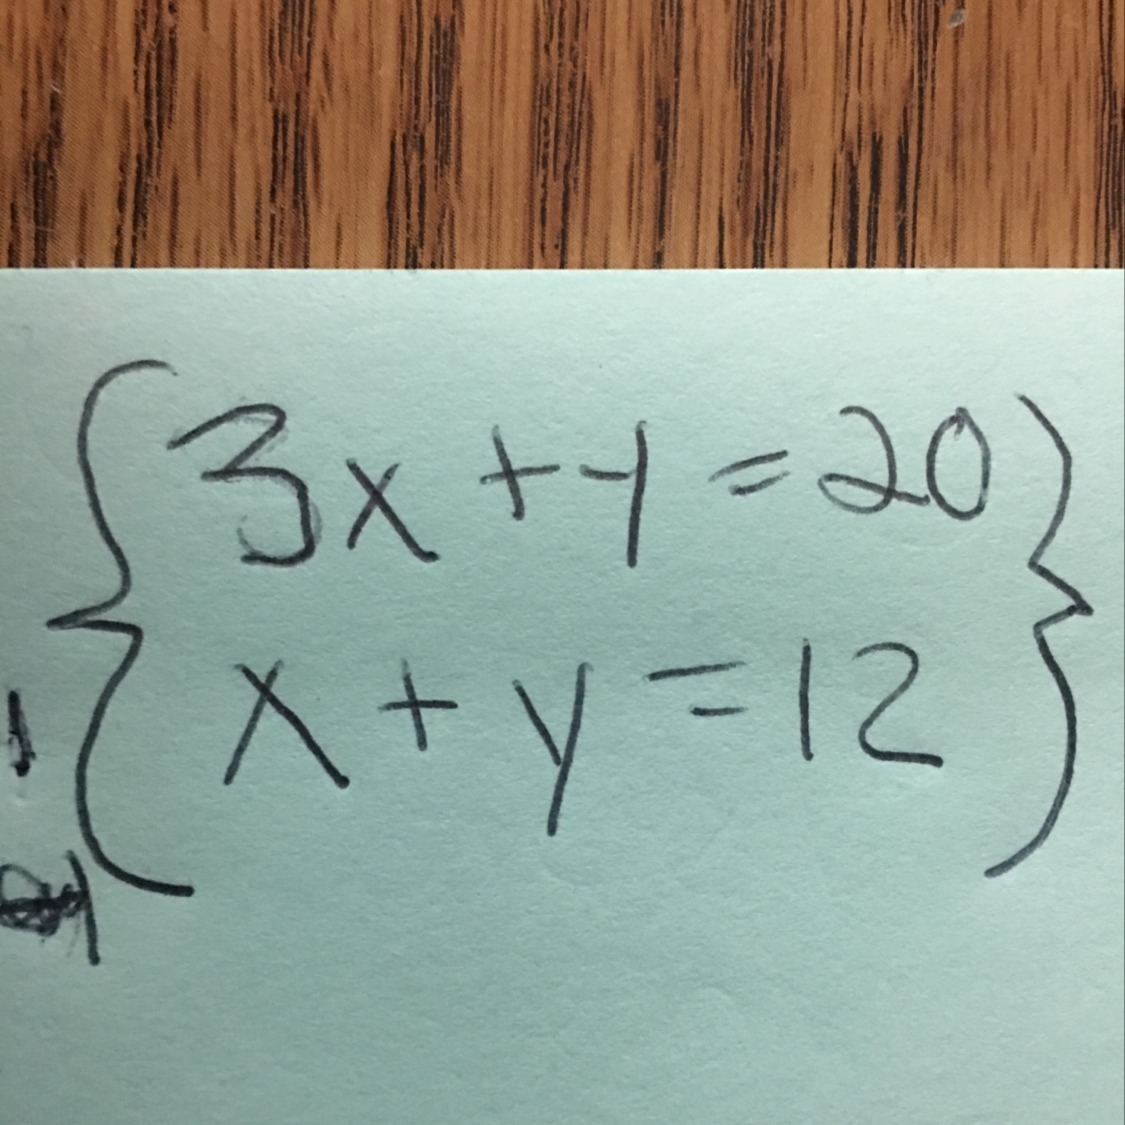 3x + y = 20
x + y = 12